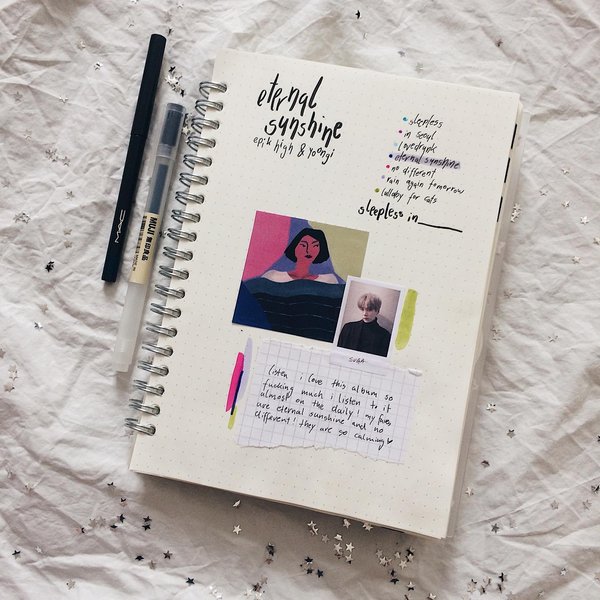 eternal
sunshine
epik high & yoongi
sleepless
in seoul
lovedrunk
eternal sunshine
no different
rain again tomorrow
lullaby for cats
sleepless in____
SUGA
listen i love this album so
fucking much i listen to it
almost on the daily! my faves
are eternal sunshine and no
different! they are so calming
MAC
MUJI 無印良品